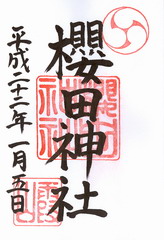 櫻田神社
平成二十二年一月五日